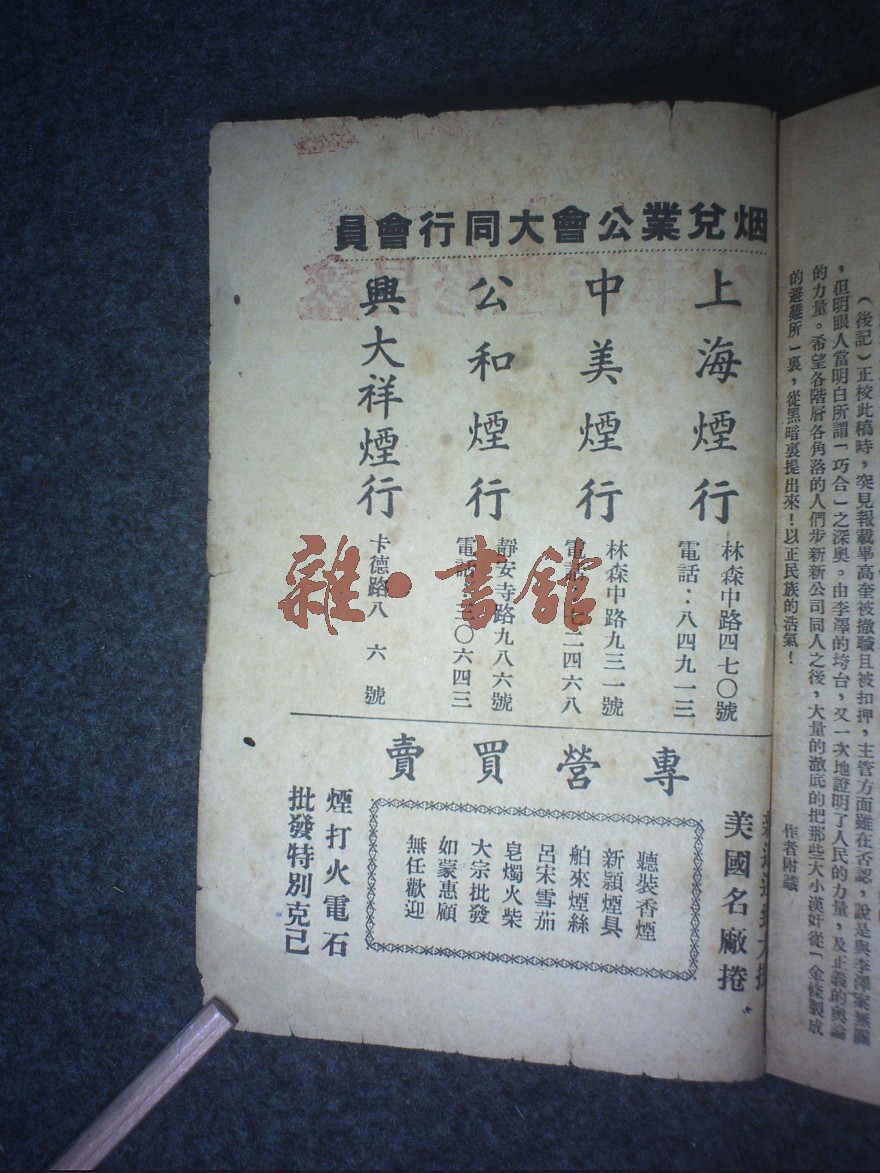 (後記)正校此稿時，突見報載畢高奎被撤職且被扣押，主管方面雖在否認，說是與李澤案無關
，但明眼人當明白所謂「巧合」之深奥。由李澤的垮台，又一次地證明了人民的力量，及正義的輿論
的力量。希望各階層各角落的人們步新新公司同人之後，大量的澈底的把那些大小漢奸從「金條製成
的避難所」裏，從黑暗裏提出來！以正民族的浩氣！
作者附識
烟兌業公會大同行會員
上海煙行
林森中路四七〇號
電話：八四九一三
中美煙行
林森中路九三一號
電話 二四六八
公和煙行
靜安寺路九八六號
電話 〇六四三
興大祥煙行
卡德路八六號
專營買賣
美國名廠捲
聽裝香煙
新頴煙具
舶來煙絲
呂宋雪茄
皂燭火柴
大宗批發
如蒙惠顧
無任歡迎
煙打火電石
批發特別克己
雜·書館